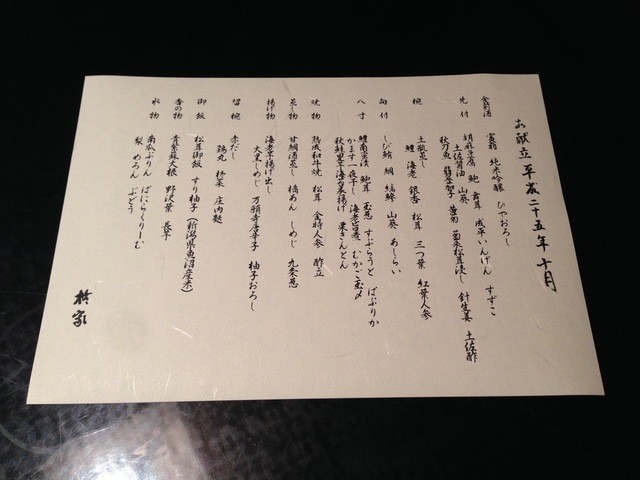 お献立 平成二十五年 十月
食前酒 富翁 純米吟醸 ひやおろし
先付 胡麻豆腐 鮑 占地 いんげん すずこ
土佐醤油 山葵
秋刀魚 翡翠茄子 茗荷 菊菜松茸浸し 針生姜 土佐酢
椀 土瓶蒸し
鱧 海老 銀杏 松茸 三つ葉 紅葉人参
向付 しび鮪 鯛 縞鯵 山葵 あしらい
八寸 鱧南蛮漬 鮑茸 玉葱 すぷらうと ぱぷりか
かます一夜干し 海老旨煮 むかご玉〆
秋鮭 海苔巻揚げ 栗きんとん
焼物 熟成和牛焼 松茸 金時人参 酢立
蒸し物 甘鯛酒蒸し 橘あん しめじ 九条葱
揚げ物 海老芋揚げ出し
大黒しめじ 万願寺唐辛子 柚子おろし
留椀 赤だし
鶏丸 抹茶 庄内麩
御飯 松茸御飯 すり柚子(新潟県魚沼産米)
香の物 青紫蘇大根 野沢菜 長芋
水物 南瓜ぷりん ばにらくりーむ
梨 めろん ぶどう